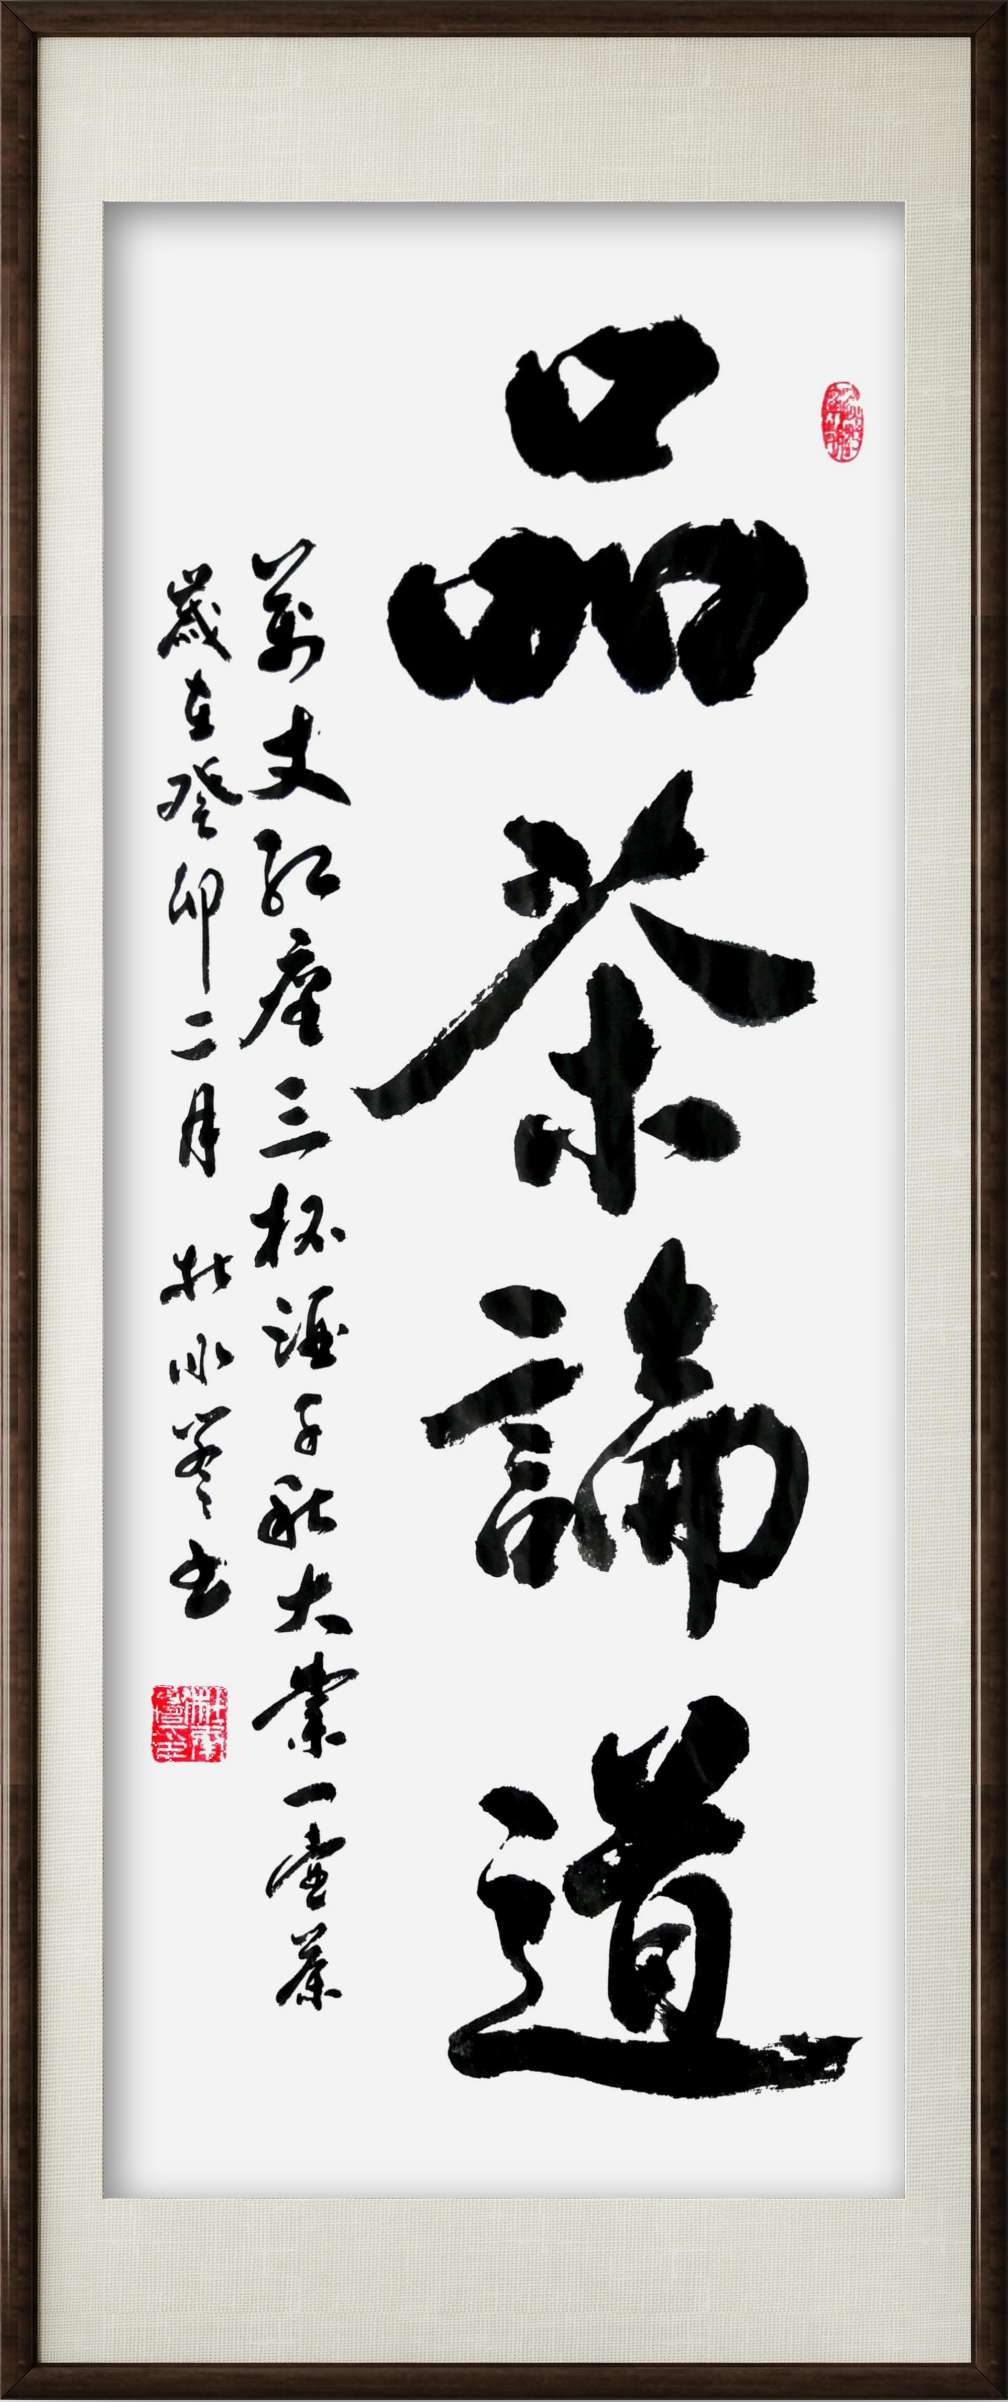 品茶論道
萬丈紅塵三杯酒千秋大業一壺茶
歲在癸卯二月 杜永㠭書